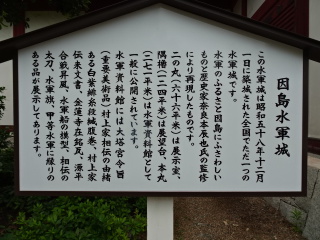 因島水軍城
この水軍城は昭和五十八年十二月
一日に築城された全国でただ一つの
水軍城です。
水軍のふるさと因島にふさわしい
ものと歴史家奈良本辰也氏の監修
により再現したものです。
二の丸（六十六平米）は展示室、
隅櫓（二四平米）は展望台、本丸
（二七一平米）は水軍資料館として
一般に公開されています。
水軍資料館には大塔宮令旨
（重要美術品）村上家相伝の由緒
ある白紫緋糸段縅腹巻、村上家
伝来文書、金蓮寺在銘瓦、源平
合戦屏風、水軍船の模型、相伝の
太刀、水軍旗、甲等水軍に縁りの
ある品が展示してあります。